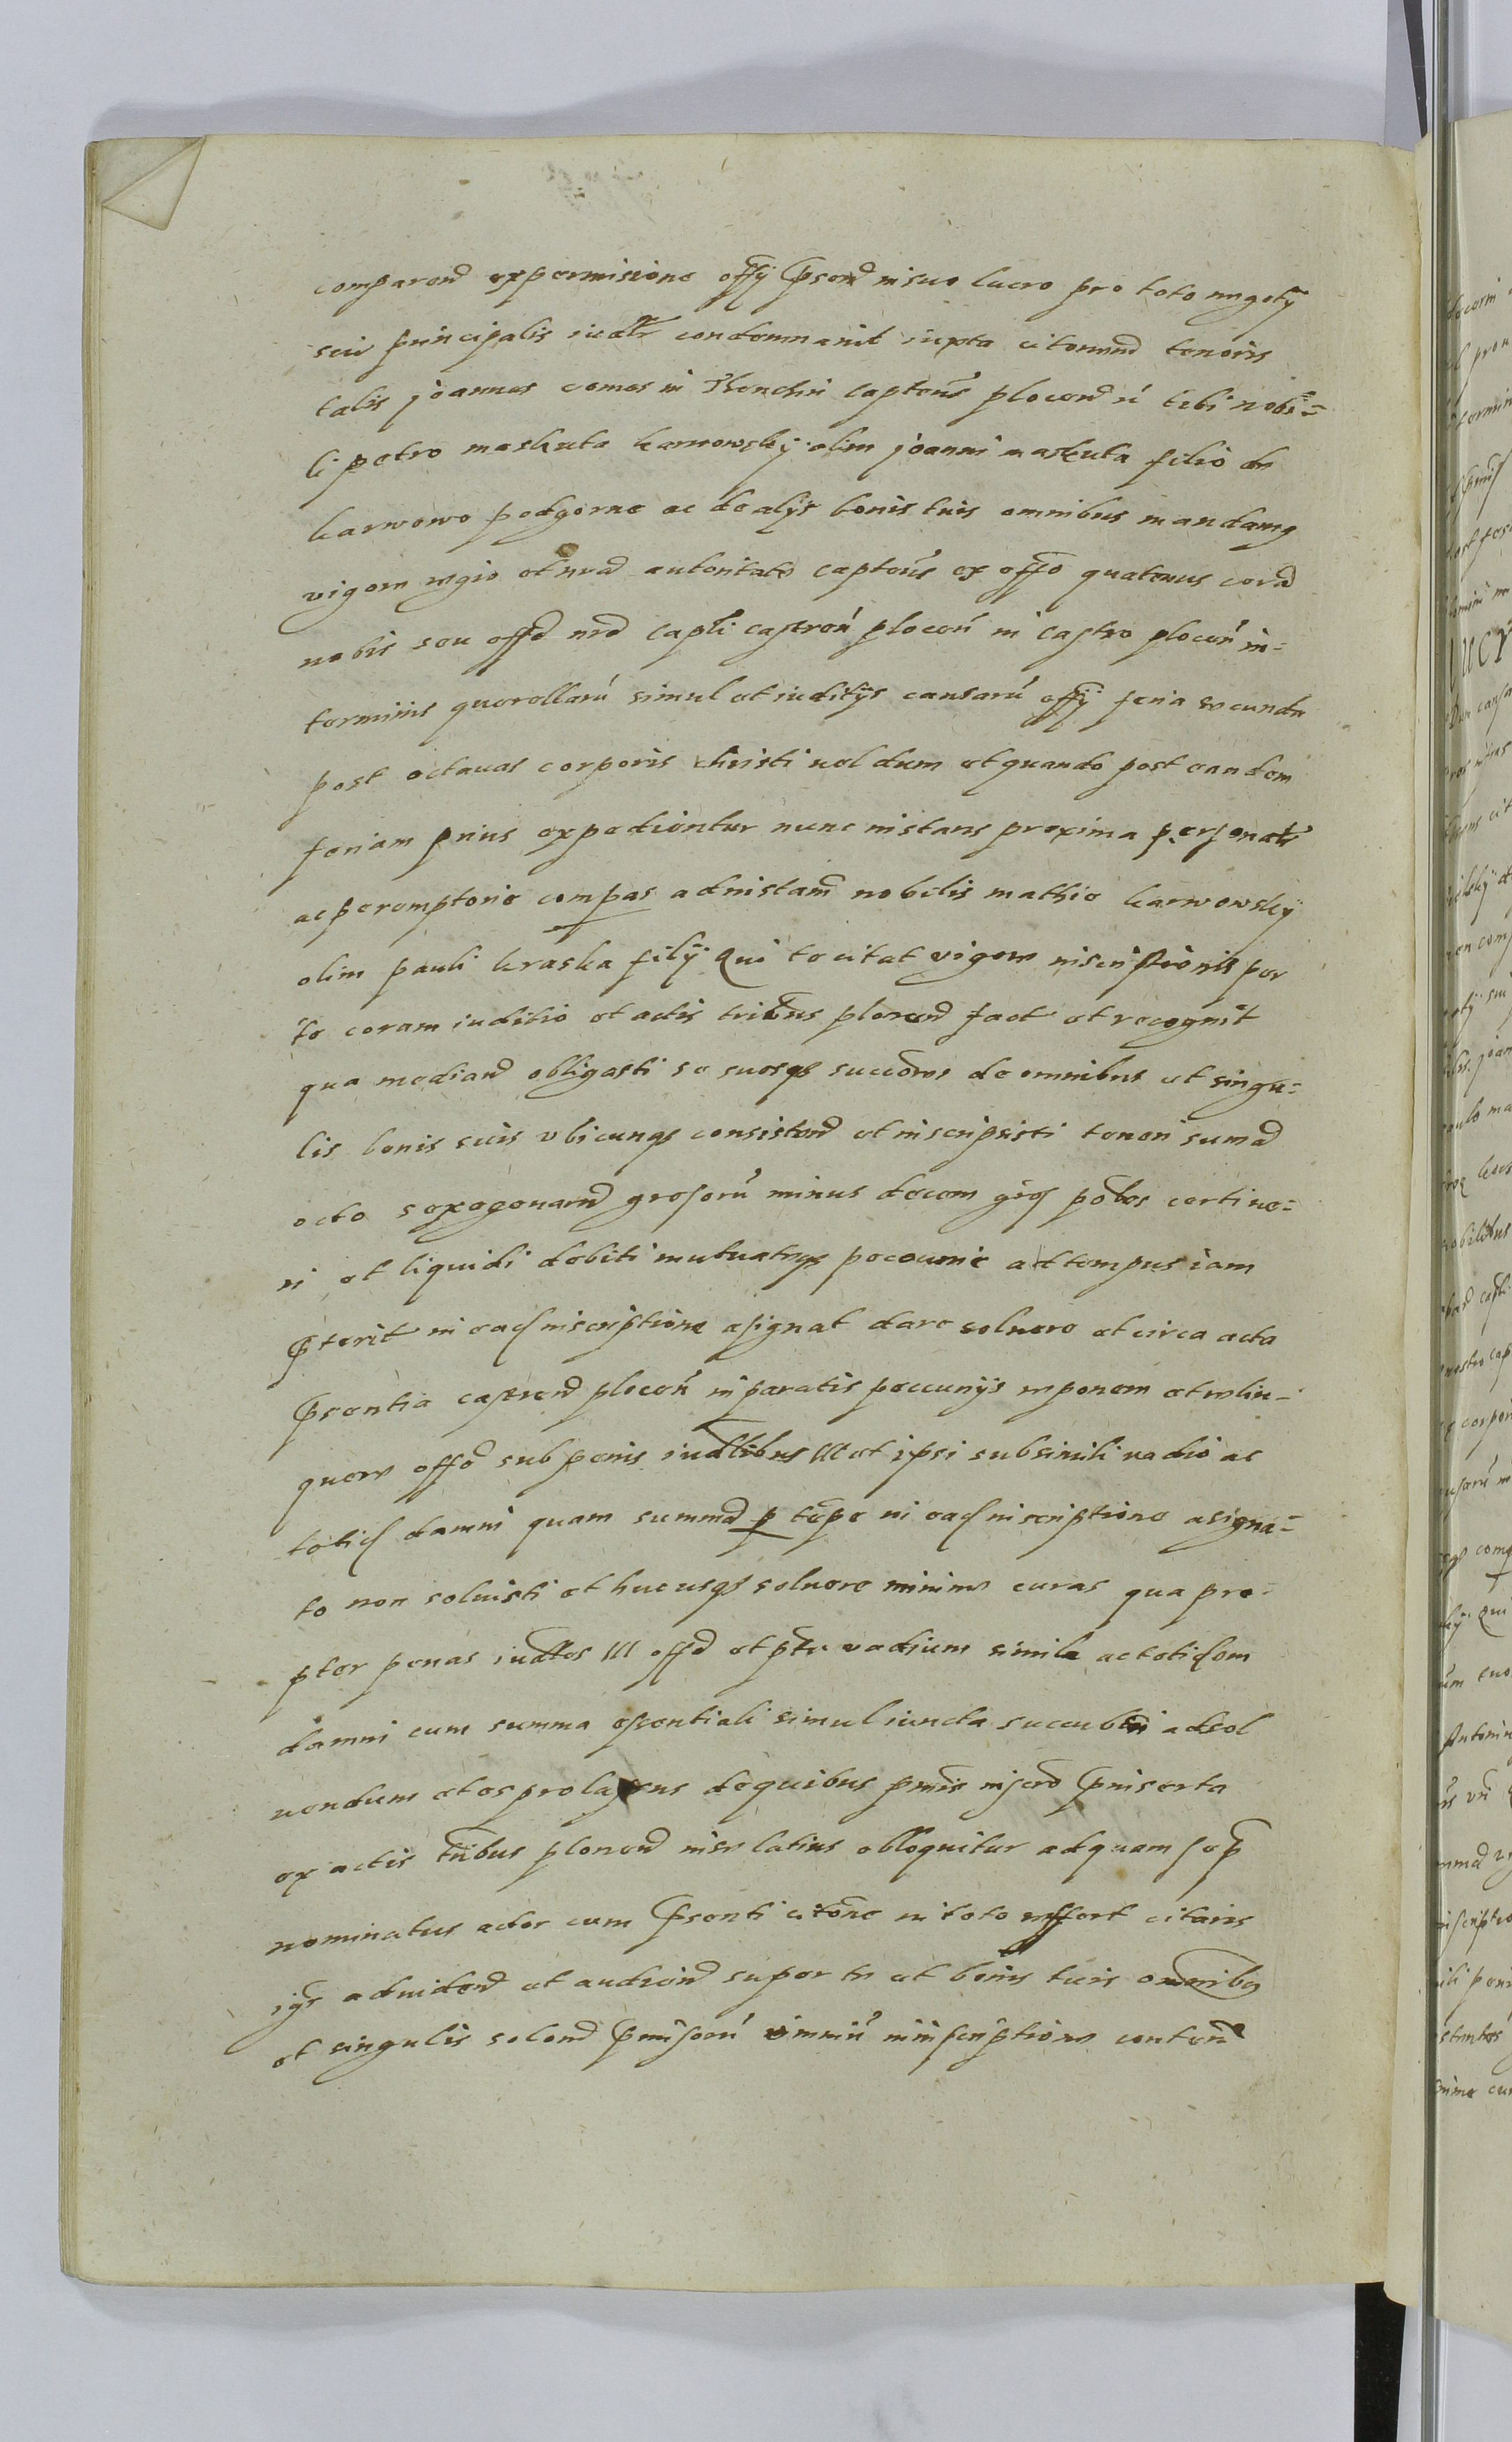 comparend ex permisione offy psend in suo lucro pro toto negoty
sui principalis iudlr condemnavit iuxta citonind tenoris
talis joannes comes in Thenchin captens plocend ń tibi nobi=
li petro maskuta karwowsky olim joanni maskuta filio de
karwowo podgorne ac de alys bonis tuis omnibus mandamg
vigore regie et nrad autoritate captens ex offo quatenus corā
nobis seu offō nrō capli castreń ploceń in castro ploceń in=
terminis querellarū simul et iuditys causarū offy feria secunda
post octauas corporis christi uel dum et quando post eandem
feriam prius expedientur nunc instans proxima personalr
ac peremptorie compas ad instam nobilis mathie karwowsky
olim pauli kraska fily Qui te citat vigore inscriptionis per
te coram iuditio et actis tribus plocend fact et recognit
qua mediand obligasti se suosqs succōres de omnibus et singu=
lis bonis suis vbicunqs consistend et inscripsisti teneri sumād
octo sexagenard grosorū minus decem gros pōles certi ve=
ri et liquidi debiti mutuateqs peccunie ad tempus iam
pterit in ead inscriptione asignat dare soluere et circa acta
psentia castrend ploceń in paratis peccunys reponere et relin=
quere offō sub penis iudlibus III et ipsi subsimili vadio ac
totid damni quam summād p tēpe in ead inscriptione asigna=
to non soluisti et hucusqs soluere minime curas qua pro=
pter penas iudles III offō et pti vadium simile ac totidem
damni cum summa essentiali simul iuncta succubui ad sol
uendum et es prolapsus de quibus pmis inscro pinserta
ex actis tribus plocend inse latius obloquitur ad quam sep
nominatus actor cum psenti citōne in toto reffert citaris
igr ad videnā et audiend super te et bonis tuis omnibus
et singulis solend pmisorū omniū in inscriptione conten